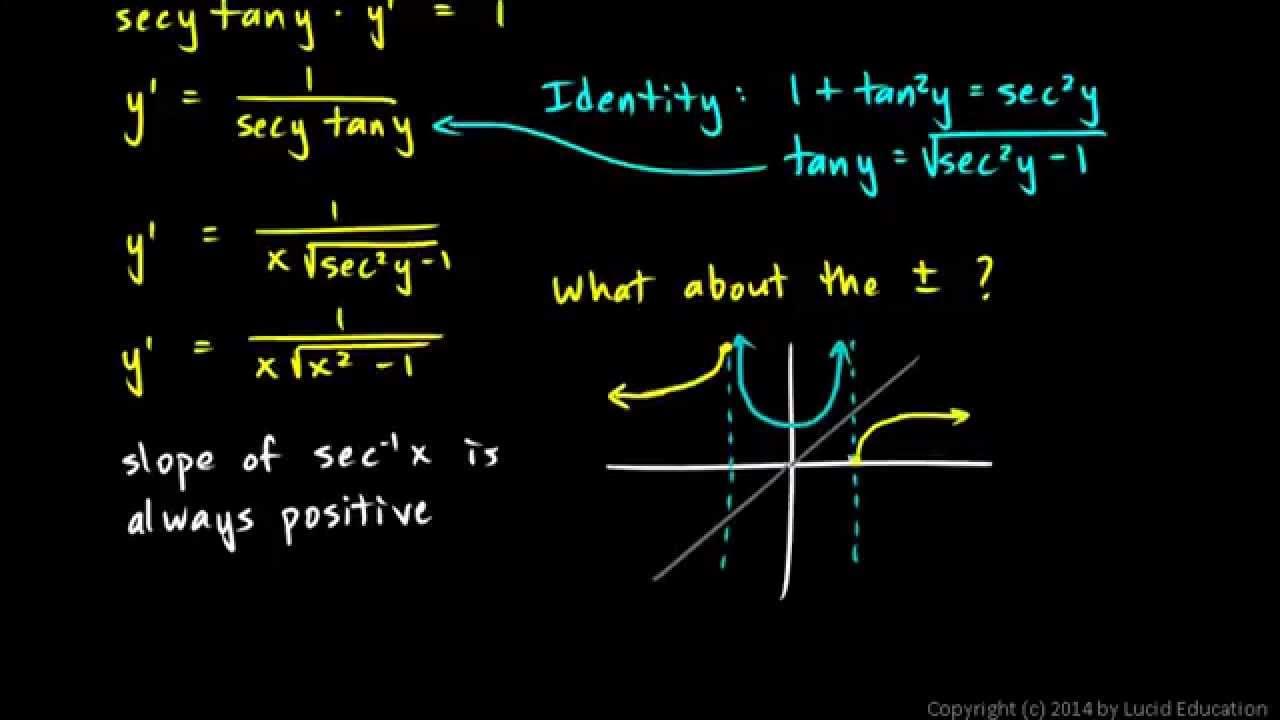 secy tany · y' = 1
y' = 1 / secy tany
Identity: 1 + tan²y = sec²y
tany = √sec²y - 1
y' = 1 / x √sec²y - 1
What about the ± ?
y' = 1 / x √x² - 1
slope of sec⁻¹x is
always positive
Copyright (c) 2014 by Lucid Education